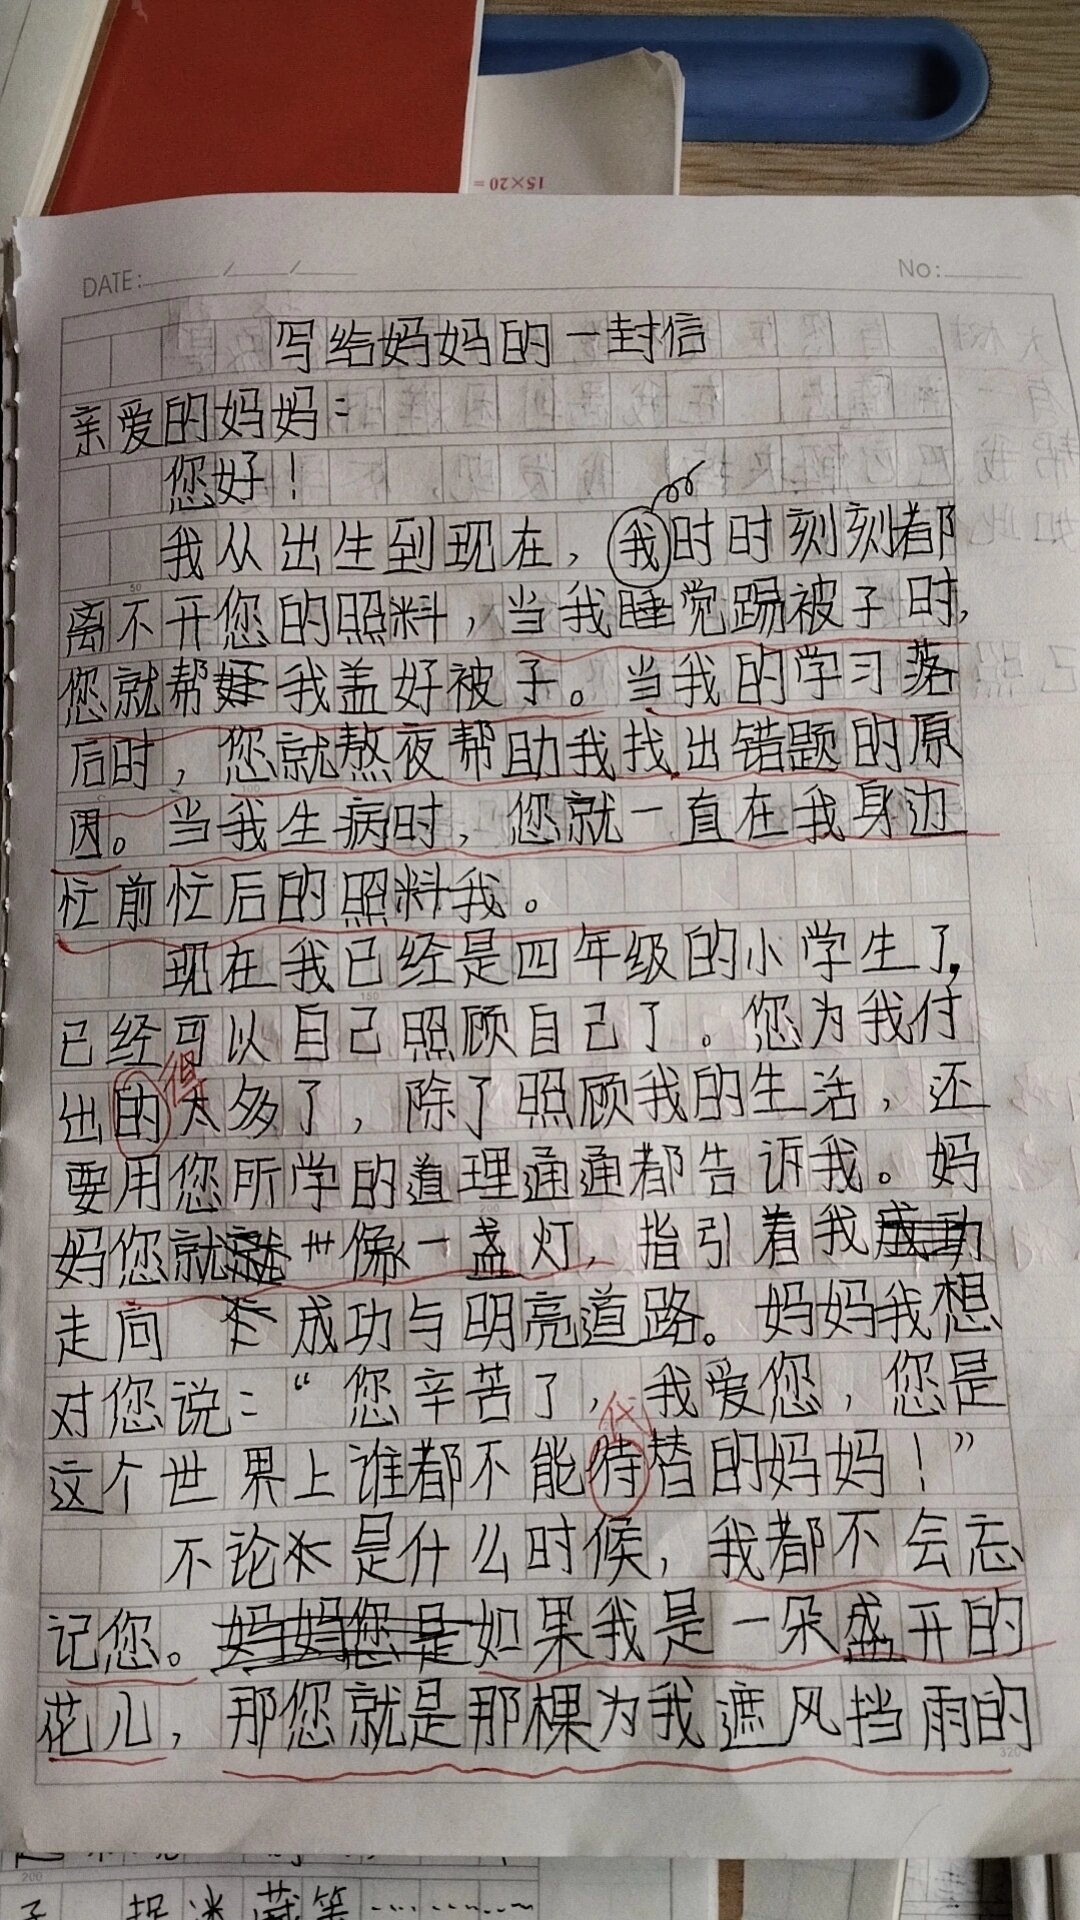 15×20=
DATE: / /
No:
写给妈妈的一封信
亲爱的妈妈：
您好！
我从出生到现在，我时时刻刻都
离不开您的照料，当我睡觉踢被子时，
您就帮我盖好被子。当我的学习落
后时，您就熬夜帮助我找出错题的原
因。当我生病时，您就一直在我身边
忙前忙后的照料我。
现在我已经是四年级的小学生了，
已经可以自己照顾自己了。您为我付
得
出的太多了，除了照顾我的生活，还
要用您所学的道理通通都告诉我。妈
妈您就像一盏灯，指引着我
走向成功与明亮道路。妈妈我想
对您说：“您辛苦了，我爱您，您是
代
这个世界上谁都不能待替的妈妈！”
不论是什么时候，我都不会忘
记您。妈妈您是如果我是一朵盛开的
花儿，那您就是那棵为我遮风挡雨的
50
100
150
200
300
320
200
子 捉迷藏等……